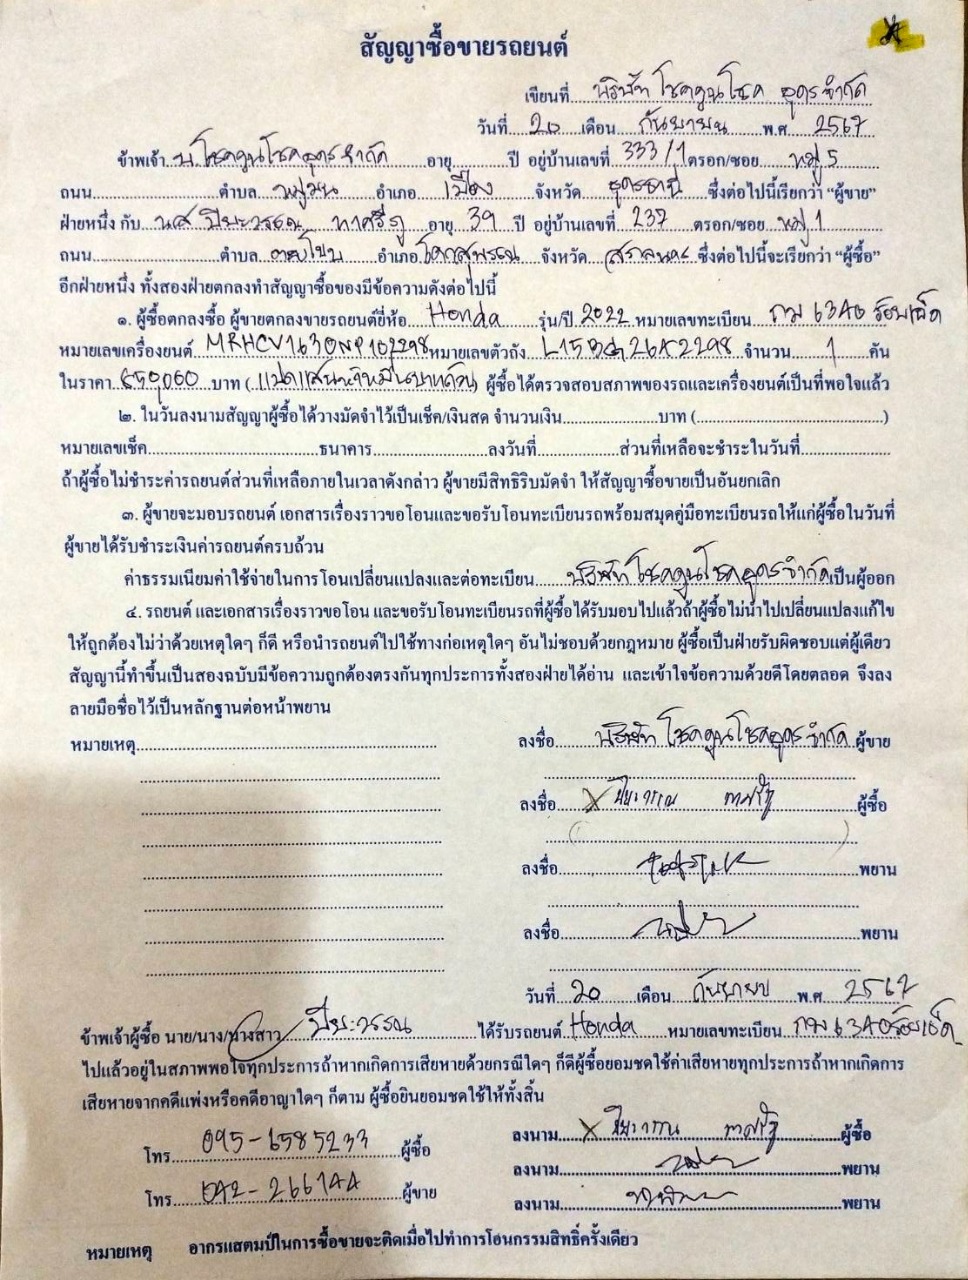 สัญญาซื้อขายรถยนต์
เขียนที่ บริษัท โชคคูณโชค อุดร จำกัด
วันที่ 20 เดือน กันยายน พ.ศ 2567
ข้าพเจ้า บ.โชคคูณโชคอุดร จำกัด อายุ........ปี อยู่บ้านเลขที่ 333/1 ตรอก/ซอย หมู่ 5
ถนน........ตำบล หมูม่น อำเภอ เมือง จังหวัด อุดรธานี ซึ่งต่อไปนี้เรียกว่า “ผู้ขาย”
ฝ่ายหนึ่ง กับ นส ปิยะวรรณ อายุ 39 ปี อยู่บ้านเลขที่ 237 ตรอก/ซอย หมู่ 1
ถนน........ตำบล ตองโขบ อำเภอ โคกศรีสุพรรณ จังหวัด สกลนคร ซึ่งต่อไปนี้จะเรียกว่า “ผู้ซื้อ”
อีกฝ่ายหนึ่ง ทั้งสองฝ่ายตกลงทำสัญญาซื้อของมีข้อความดังต่อไปนี้
๑. ผู้ซื้อตกลงซื้อ ผู้ขายตกลงขายรถยนต์ยี่ห้อ Honda รุ่น/ปี 2022 หมายเลขทะเบียน กม 6340 ร้อยเอ็ด
หมายเลขเครื่องยนต์ MRHCV1630NP107298 หมายเลขตัวถัง จำนวน 1 คัน
ในราคา 859,000 บาท ( ) ผู้ซื้อได้ตรวจสอบสภาพของรถและเครื่องยนต์เป็นที่พอใจแล้ว
๒. ในวันลงนามสัญญาผู้ซื้อได้วางมัดจำไว้เป็นเช็ค/เงินสด จำนวนเงิน........บาท (........)
หมายเลขเช็ค........ธนาคาร........ลงวันที่........ส่วนที่เหลือจะชำระในวันที่........
ถ้าผู้ซื้อไม่ชำระค่ารถยนต์ส่วนที่เหลือภายในเวลาดังกล่าว ผู้ขายมีสิทธิริบมัดจำ ให้สัญญาซื้อขายเป็นอันยกเลิก
๓. ผู้ขายจะมอบรถยนต์ เอกสารเรื่องราวขอโอนและขอรับโอนทะเบียนรถพร้อมสมุดคู่มือทะเบียนรถให้แก่ผู้ซื้อในวันที่
ผู้ขายได้รับชำระเงินค่ารถยนต์ครบถ้วน
ค่าธรรมเนียมค่าใช้จ่ายในการโอนเปลี่ยนแปลงและต่อทะเบียน บริษัท โชคคูณโชคอุดร จำกัด เป็นผู้ออก
๔. รถยนต์ และเอกสารเรื่องราวขอโอน และขอรับโอนทะเบียนรถที่ผู้ซื้อได้รับมอบไปแล้วถ้าผู้ซื้อไม่นำไปเปลี่ยนแปลงแก้ไข
ให้ถูกต้องไม่ว่าด้วยเหตุใดๆ ก็ดี หรือนำรถยนต์ไปใช้ทางก่อเหตุใดๆ อันไม่ชอบด้วยกฎหมาย ผู้ซื้อเป็นฝ่ายรับผิดชอบแต่ผู้เดียว
สัญญานี้ทำขึ้นเป็นสองฉบับมีข้อความถูกต้องตรงกันทุกประการทั้งสองฝ่ายได้อ่าน และเข้าใจข้อความด้วยดีโดยตลอด จึงลง
ลายมือชื่อไว้เป็นหลักฐานต่อหน้าพยาน
หมายเหตุ........ ลงชื่อ บริษัท โชคคูณโชคอุดร จำกัด ผู้ขาย
ลงชื่อ X ปิยะวรรณ ผู้ซื้อ
( )
ลงชื่อ........พยาน
ลงชื่อ........พยาน
วันที่ 20 เดือน กันยายน พ.ศ 2567
ข้าพเจ้าผู้ซื้อ นาย/นาง/นางสาว ปิยะวรรณ ได้รับรถยนต์ Honda หมายเลขทะเบียน กม 6340 ร้อยเอ็ด
ไปแล้วอยู่ในสภาพพอใจทุกประการถ้าหากเกิดการเสียหายด้วยกรณีใดๆ ก็ดีผู้ซื้อยอมชดใช้ค่าเสียหายทุกประการถ้าหากเกิดการ
เสียหายจากคดีแพ่งหรือคดีอาญาใดๆ ก็ตาม ผู้ซื้อยินยอมชดใช้ให้ทั้งสิ้น
โทร 095-6585233 ผู้ซื้อ ลงนาม X ปิยะวรรณ ผู้ซื้อ
ลงนาม........พยาน
โทร 042-266744 ผู้ขาย ลงนาม........พยาน
หมายเหตุ อากรแสตมป์ในการซื้อขายจะติดเมื่อไปทำการโอนกรรมสิทธิ์ครั้งเดียว